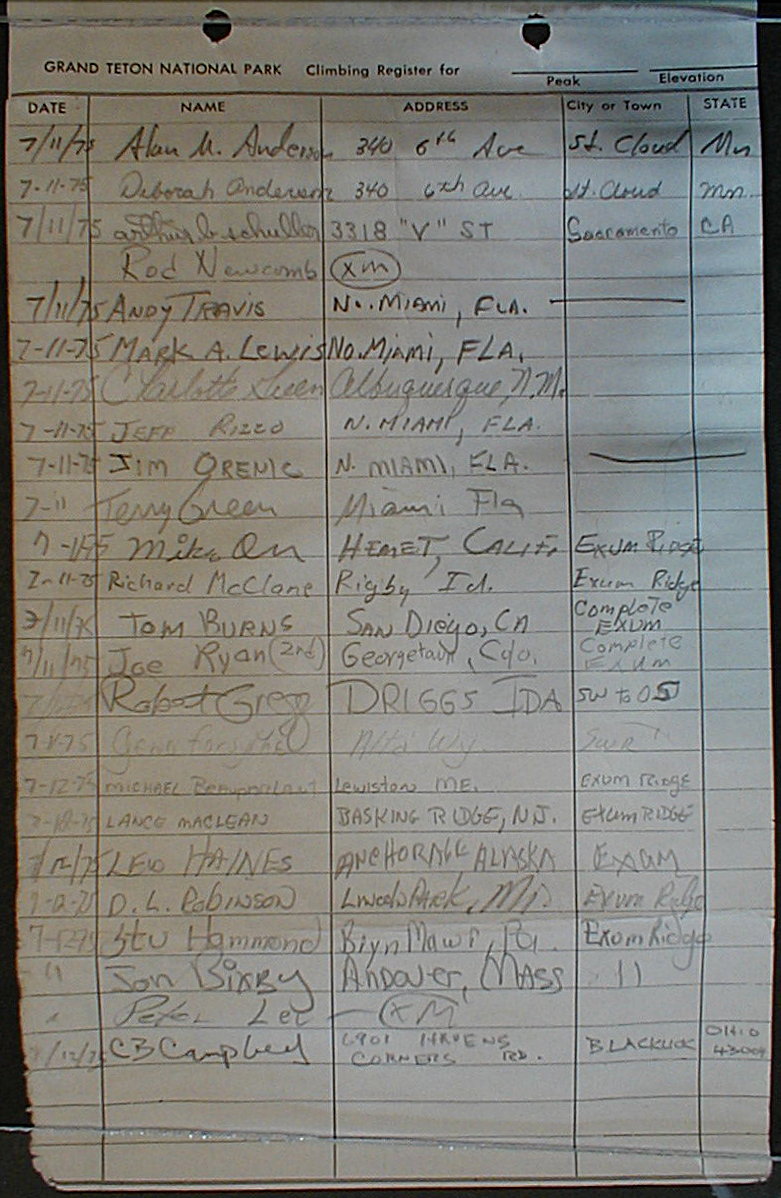 GRAND TETON NATIONAL PARK Climbing Register for
Peak Elevation
DATE NAME ADDRESS City or Town STATE
7/11/75 Alan M. Anderson 340 6th Ave St. Cloud Mn
7-11-75 Deborah Anderson 340 6th Ave. St. Cloud mn.
7/11/75 3318 "V" ST Sacramento CA
Rod Newcomb XM
7/11/75 ANDY TRAVIS No. MIAMI, FLA.
7-11-75 MARK A. LEWIS No. MIAMI, FLA.
7-11-75 Charlotte Green Albuquerque, N.M.
7-11-75 JEFF RIZZO N. MIAMI, FLA.
7-11-75 JIM ORENIC N. MIAMI, FLA.
7-11 Terry Green Miami Fla
Mike Orr HEMET, CALIF. EXUM RIDGE
7-11-75 Richard McClane Rigby Id. Exum Ridge
7/11/75 TOM BURNS SAN DIEGO, CA COMPLETE EXUM
7/11/75 Joe Ryan (2nd) Georgetown, Colo. Complete EXUM
Robert Gregg DRIGGS IDA SW TO OS
7-11-75 Alta Wy.
7-12-75 MICHAEL Lewiston ME. EXUM RIDGE
7-12-75 LANCE MACLEAN BASKING RIDGE, N.J. EXUM RIDGE
7/12/75 LEW HAINES ANCHORAGE ALASKA EXUM
7-12-75 D. L. ROBINSON Lincoln PARK, Mi. EXUM Ridge
7-12-75 Stu Hammond Bryn Mawr, Pa. Exum Ridge
" Jon Bixby ANDOVER, MASS 11
" Peter Lev - XM
7/12/75 CB Campbell 6901 HAVENS CORNERS RD. BLACKLICK OHIO 43004